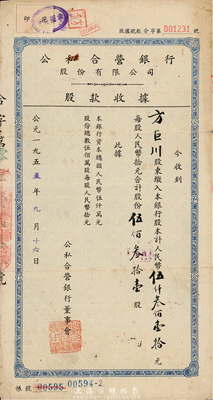 股款收據 字第 001231 號
公私合營銀行
股份有限公司
股款收據
今收到
方巨川股東繳入本銀行股本計人民幣伍仟叁佰壹拾元
每股人民幣拾元合計股份伍佰叁拾壹股
此據
本銀行資本總額人民幣伍仟萬元
股份總數伍佰萬股每股人民幣拾元
公私合營銀行董事會
公元一九五五年九月十六日
帳號 00595 00594-2